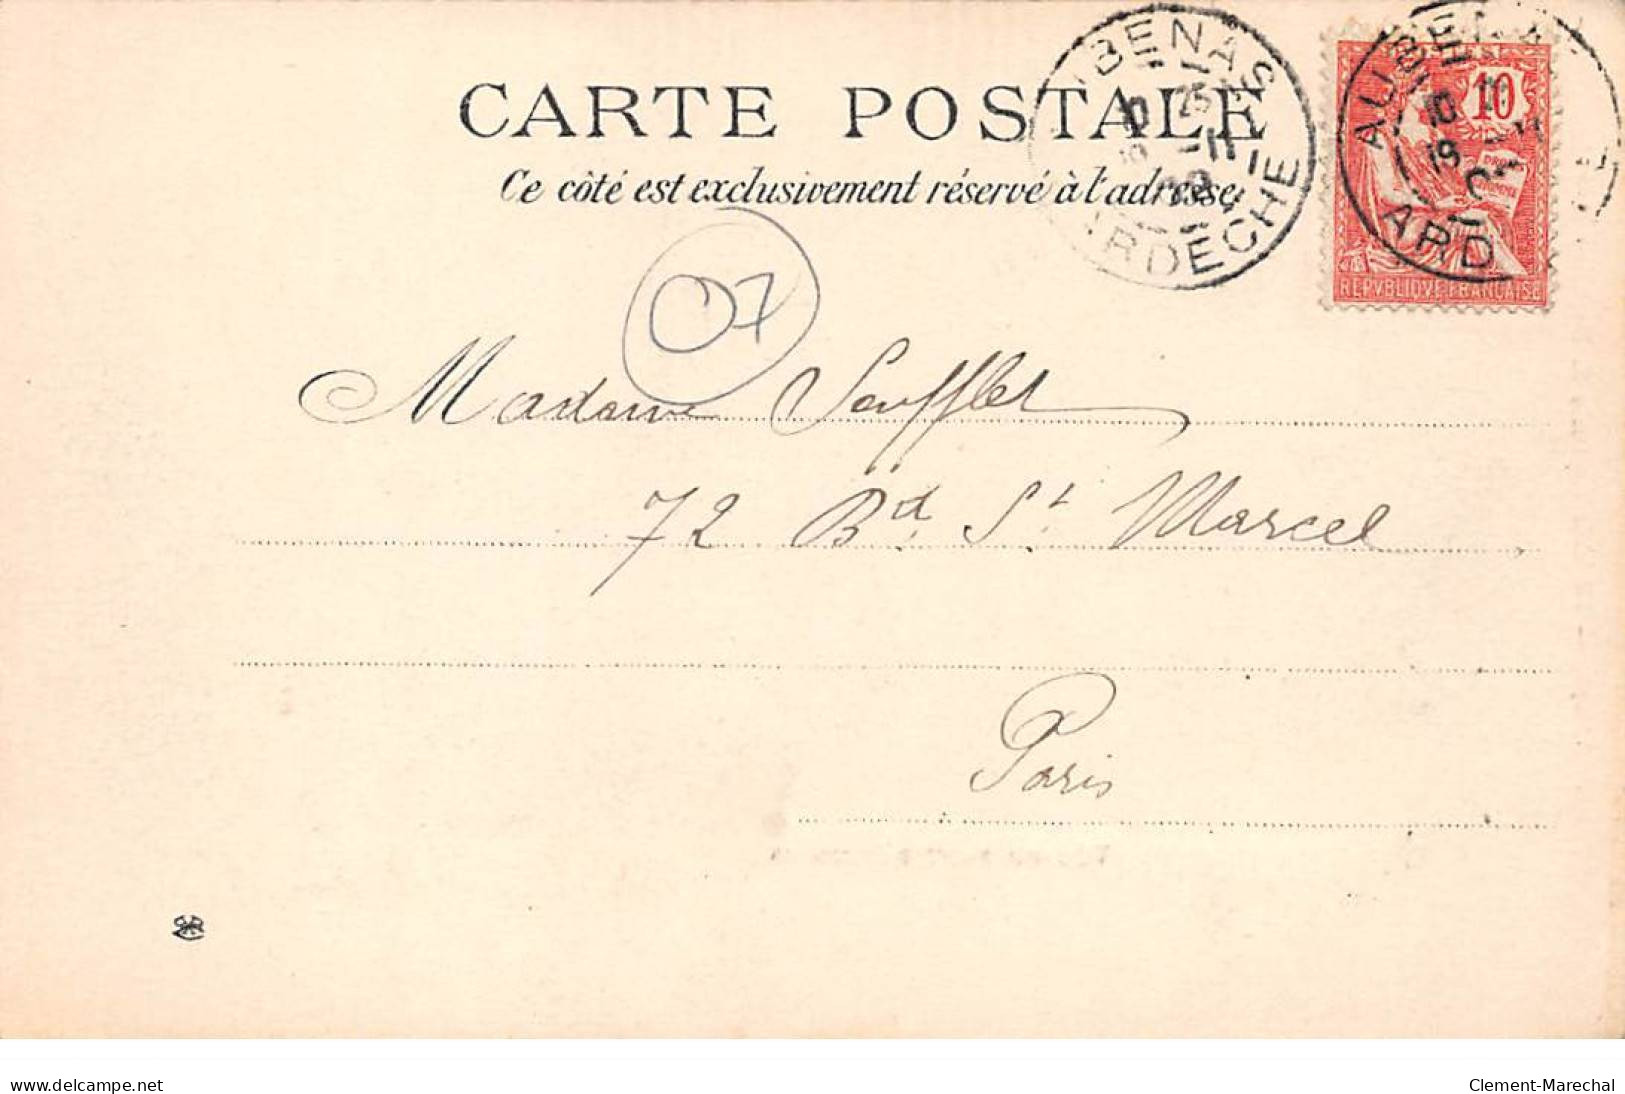 CARTE POSTALE
Ce côté est exclusivement réservé à l'adresse
BENAS
25
11
ARDECHE
POSTES
10
REPVBLIQVE FRANÇAISE
AUBENAS
ARD
07
Madame Soufflet
72 Bd. St. Marcel
Paris
www.delcampe.net
Clement-Marechal